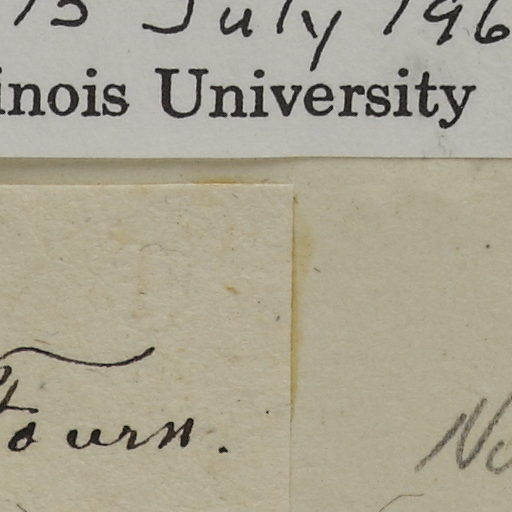 13 July 196
inois University
Fourn.
No